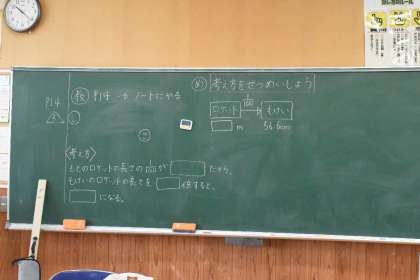 教 P14 → ノートにやる
P14
め 考え方をせつめいしよう
ロケット
もけい
m
56.6cm
〈考え方〉
もとのロケットの長さの が だから、
もけいのロケットの長さを 倍すると、
になる。